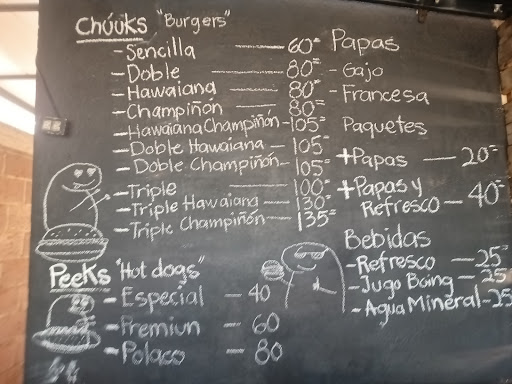 Chúuks "Burgers"
- Sencilla — 60=
- Doble — 80=
- Hawaiana — 80=
- Champiñón — 80=
- Hawaiana Champiñón - 105=
- Doble Hawaiana - 105=
- Doble Champiñón - 105=
- Triple — 100=
- Triple Hawaiana — 130=
- Triple Champiñón — 135=
Peeks "Hot dogs"
- Especial - 40
- Premiun - 60
- Polaco - 80
Papas
- Gajo
- Francesa
Paquetes
+ Papas — 20=
+ Papas y
Refresco — 40=
Bebidas
- Refresco — 25=
- Jugo Boing - 25
- Agua Mineral - 25